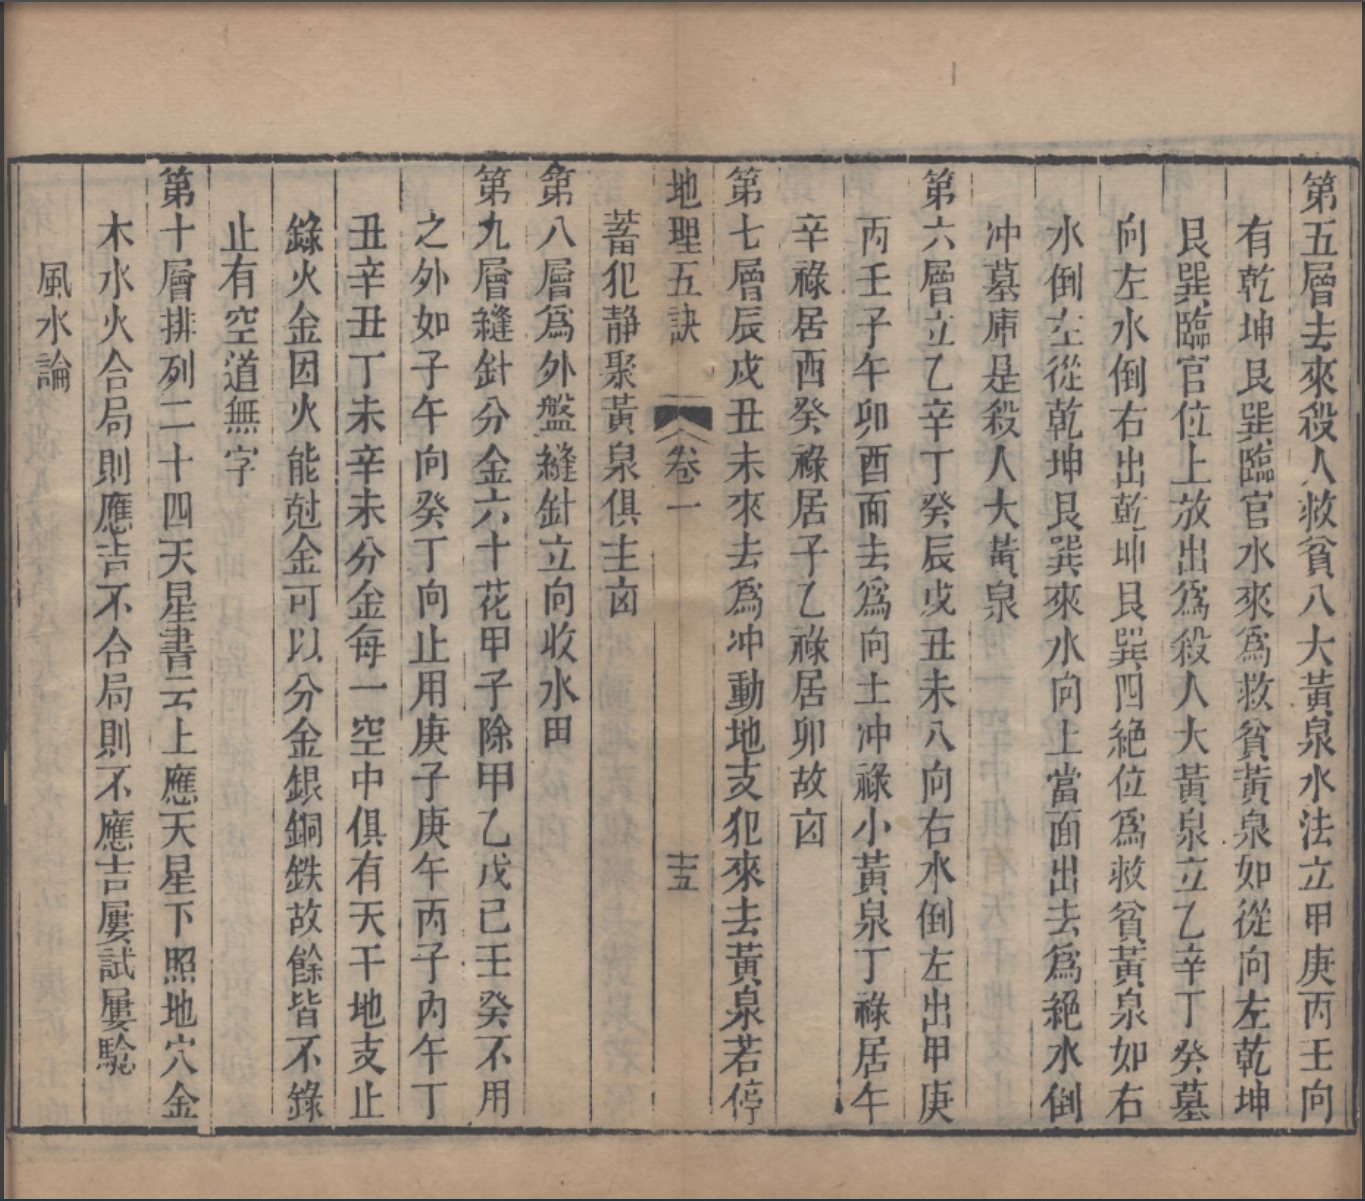 第五層去來殺人救貧八大黃泉水法立甲庚丙壬向
有乾坤艮巽臨官水來爲救貧黃泉如從向左乾坤
艮巽臨官位上放出爲殺人大黃泉立乙辛丁癸墓
向左水倒右出乾坤艮巽四絕位爲救貧黃泉如右
水倒左從乾坤艮巽來水向上當面出去爲絕水倒
冲墓庫是殺人大黃泉
第六層立乙辛丁癸辰戌丑未八向右水倒左出甲庚
丙壬子午卯酉面去爲向上冲祿小黃泉丁祿居午
辛祿居酉癸祿居子乙祿居卯故凶
第七層辰戌丑未來去爲冲動地支犯來去黃泉若停
地理五訣 卷一 十五
蓄犯静聚黃泉俱主凶
第八層爲外盤縫針立向收水田
第九層縫針分金六十花甲子除甲乙戊己壬癸不用
之外如子午向癸丁向止用庚子庚午丙子丙午丁
丑辛丑丁未辛未分金每一空中俱有天干地支止
錄火金因火能尅金可以分金銀銅鉄故餘皆不錄
止有空道無字
第十層排列二十四天星書云上應天星下照地穴金
木水火合局則應吉不合局則不應吉屢試屢驗
風水論